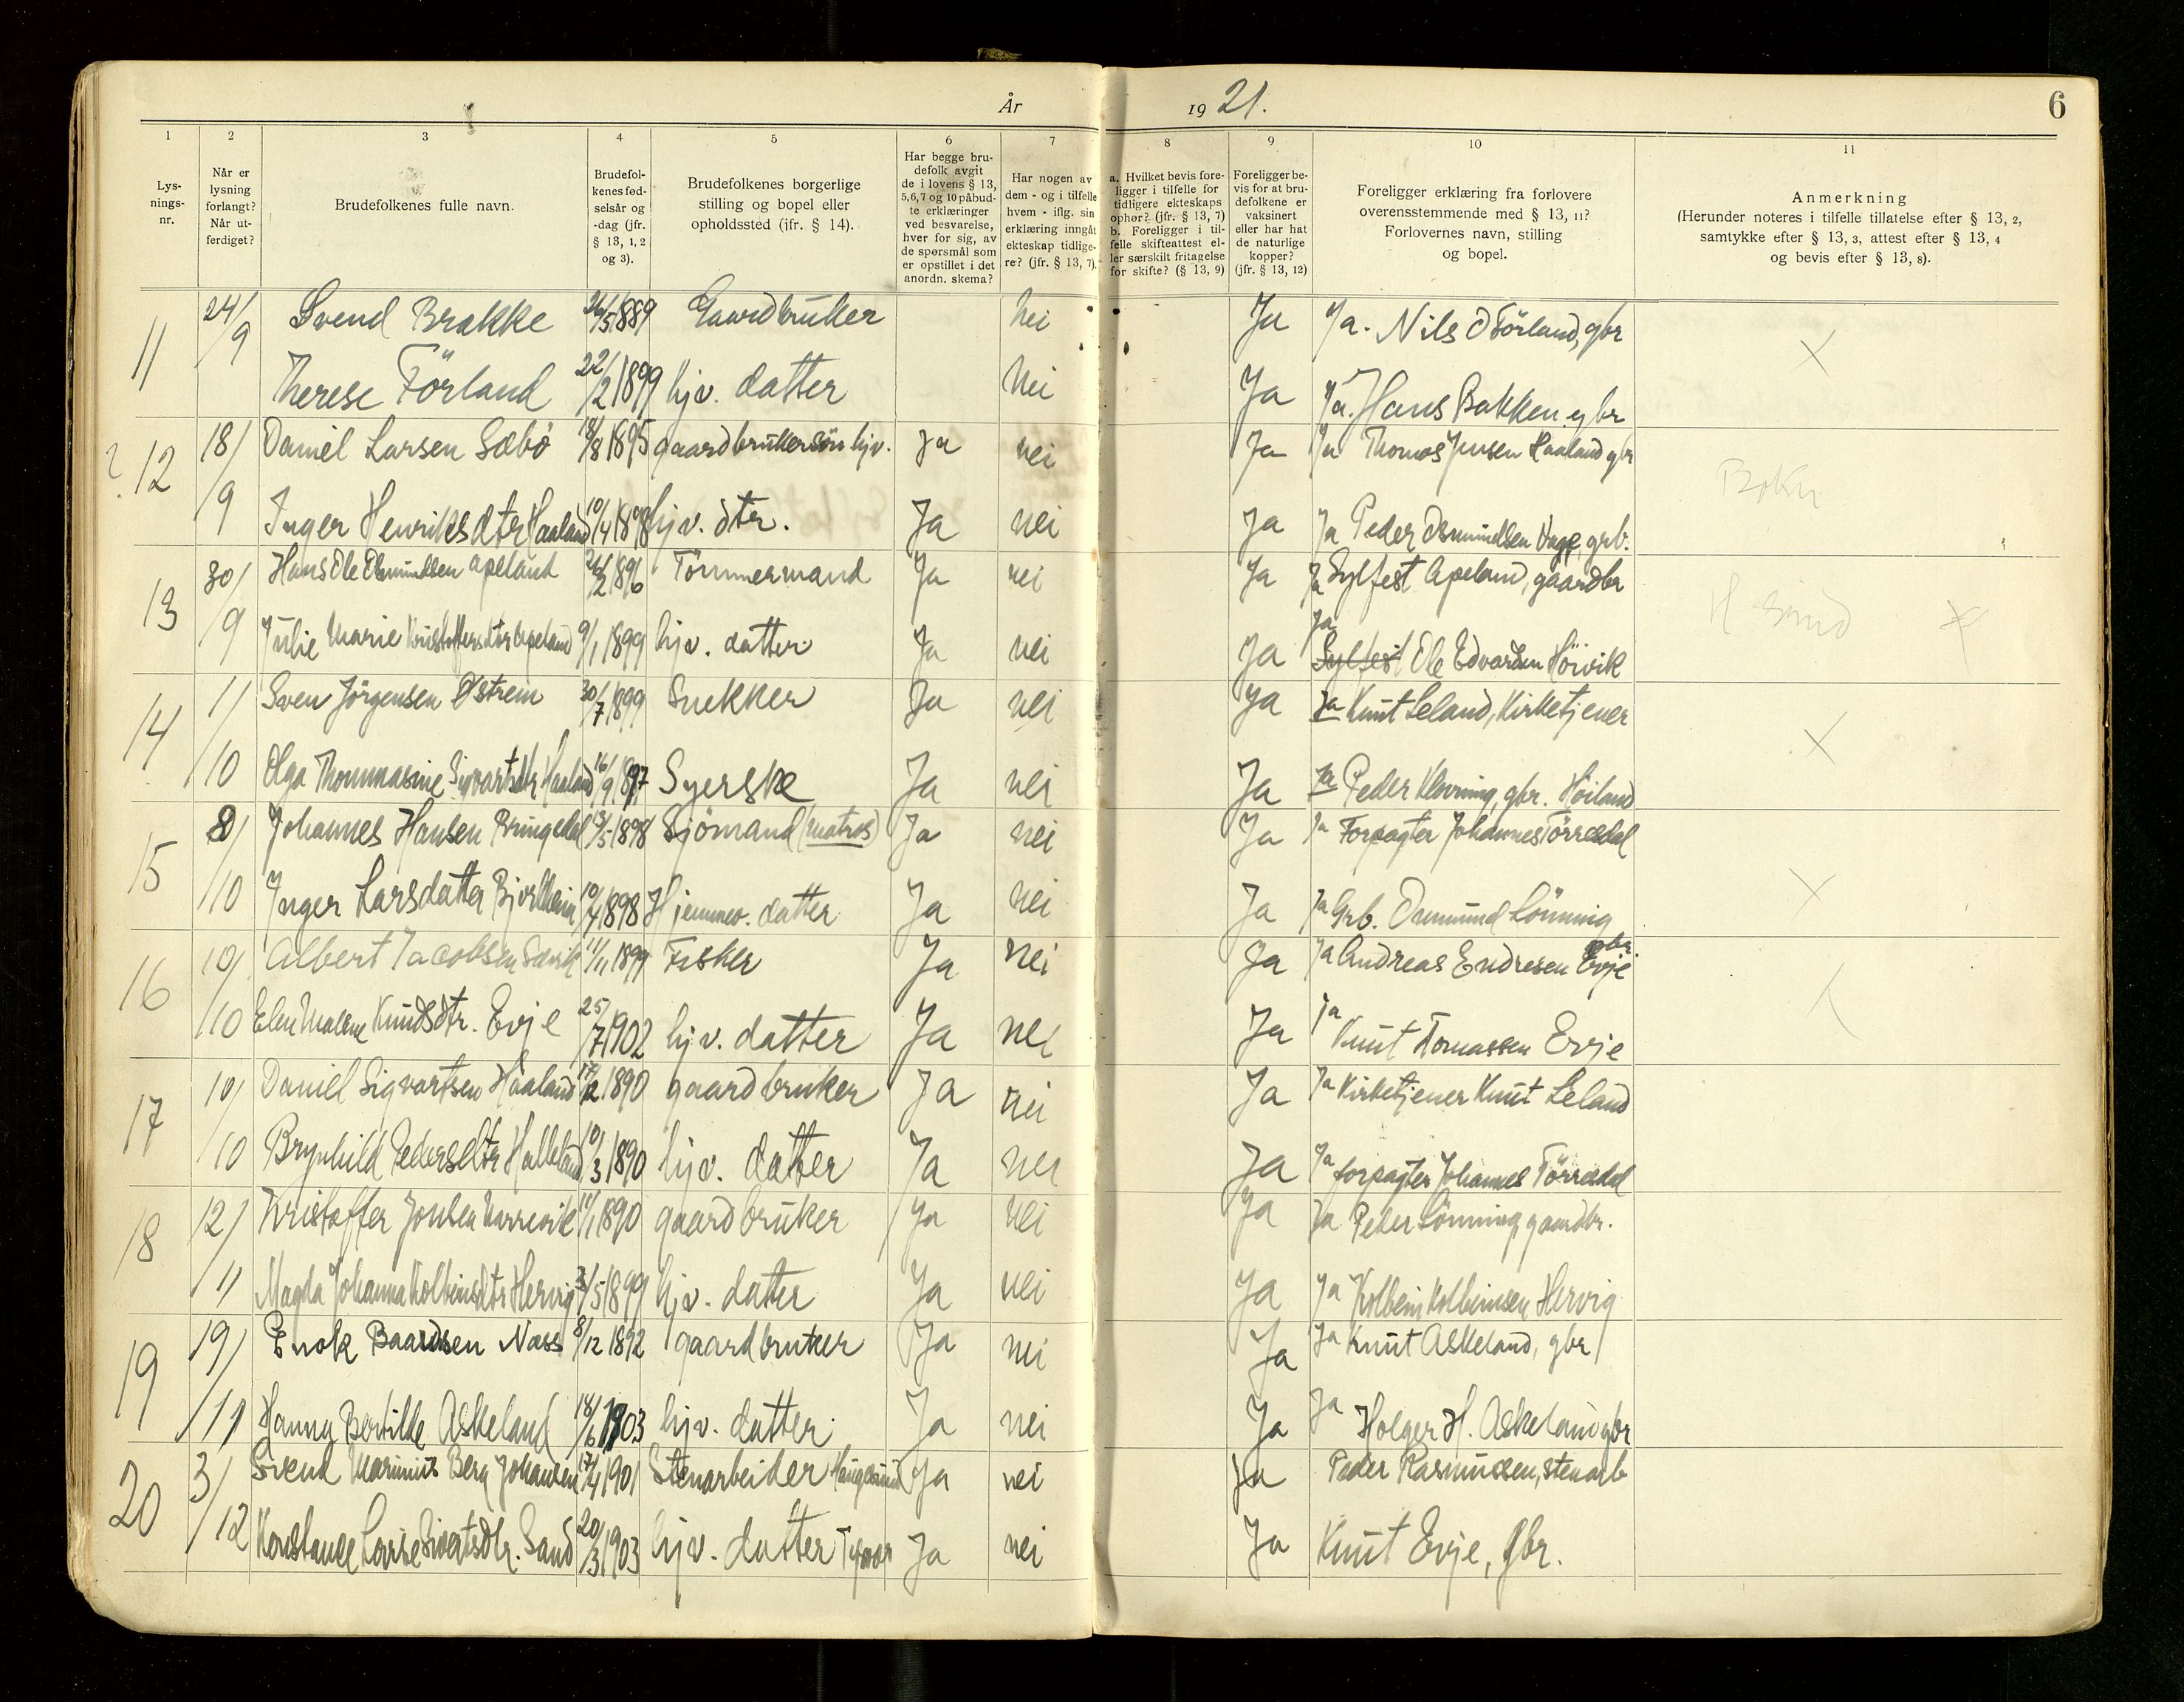 År 1921.
6
1 2 3 4 5 6 7 8 9 10 11
Lys-
nings-
nr.
Når er
lysning
forlangt?
Når ut-
ferdiget?
Brudefolkenes fulle navn.
Brudefol-
kenes fød-
selsår og
-dag (jfr.
§ 13, 1, 2
og 3).
Brudefolkenes borgerlige
stilling og bopel eller
opholdssted (jfr. § 14).
Har begge bru-
defolk avgit
de i lovens § 13,
5, 6, 7 og 10 påbud-
te erklæringer
ved besvarelse,
hver for sig, av
de spørsmål som
er opstillet i det
anordn. skema?
Har nogen av
dem - og i tilfelle
hvem - iflg. sin
erklæring inngåt
ekteskap tidlige-
re? (jfr. § 13, 7).
a. Hvilket bevis fore-
ligger i tilfelle for
tidligere ekteskaps
ophør? (jfr. § 13, 7)
b. Foreligger i til-
felle skifteattest el-
ler særskilt fritagelse
for skifte? (§ 13, 9)
Foreligger be-
vis for at bru-
defolkene er
vaksinert
eller har hat
de naturlige
kopper?
(jfr. § 13, 12)
Foreligger erklæring fra forlovere
overensstemmende med § 13, 11?
Forlovernes navn, stilling
og bopel.
Anmerkning
(Herunder noteres i tilfelle tillatelse efter § 13, 2,
samtykke efter § 13, 3, attest efter § 13, 4
og bevis efter § 13, 8).
11 24/9 Svend Brakke 26/5 1889 Gaardbruker nei Ja Ja. Nils O Førland, gbr X
Therese Førland 22/2 1899 hjv. datter Nei Ja Ja. Hans Bakken gbr
? 12 18/9 Daniel Larsen Sæbö 18/8 1895 gaardbrukersön hjv. Ja nei Ja Ja Thomas Jensen Haaland gbr Bokn
Inger Henriksdtr Haaland 10/4 1898 hjv. dtr. Ja nei Ja Ja Peder Osmundsen Vage, grb.
13 30/9 Hans Ole Osmundsen Apeland 1896 Tömmermand Ja nei Ja Ja Sylfest Apeland, gaardbr H Sund X
Julie Marie Kristoffersdtr Apeland 9/1 1899 hjv. datter Ja nei Ja Ja Sylfest Ole Edvardsen Hörvik
14 1/10 Sven Jörgensen Østrem 30/7 1899 Snekker Ja nei Ja Ja Knut Leland, Kirketjener X
Olga Thommasine Sigvartsdtr Haaland 16/9 1897 Syerske Ja nei Ja Ja Peder Klovning, gbr. Höiland
15 8/10 Johannes Hansen Bringedal 13/5 1898 Sjömand (matros) Ja nei Ja Ja Forpagter Johannes Törresdal X
Inger Larsdatter Bjordheim 10/4 1898 Hjemmev. datter Ja nei Ja Ja Grb. Osmund Lönning
16 10/10 Albert Jacobsen Sævik 11/11 1899 Fisker Ja nei Ja Ja Andreas Endresen Evje gbr
Elen Malene Knudsdtr. Evje 25/7 1902 hjv. datter Ja nei Ja Ja Knut Tomassen Evje
17 10/10 Daniel Sigvartsen Haaland 17/12 1890 gaardbruker Ja nei Ja Ja Kirketjener Knut Leland
Brynhild Pedersdtr Halleland 10/3 1890 hjv. datter Ja nei Ja Ja forpagter Johannes Törresdal
18 12/11 Kristoffer Jonsen 11/1 1890 gaardbruker Ja nei Ja Ja Peder Lönning gaardbr.
Magda Johanna Kolbeinsdtr Hervig 5 1899 hjv. datter Ja nei Ja Ja Kolbein Kolbeinsen Hervig
19 19/11 Enok Baardsen Næss 8/12 1892 gaardbruker Ja nei Ja Ja Knut Askeland, gbr
Hanna Bertilde Askeland 18/6 1903 hjv. datter. Ja nei Ja Ja Holger H. Askeland gbr
20 3/12 Svend Marinius Berg Johansen 17/4 1901 Stenarbeider Haugesund Ja nei Ja Peder Rasmussen, stenarb
Konstance Lovise Sivertsdtr. Sand 20/3 1903 hjv. datter Tysvær Ja nei Ja Knut Evje, Gbr.